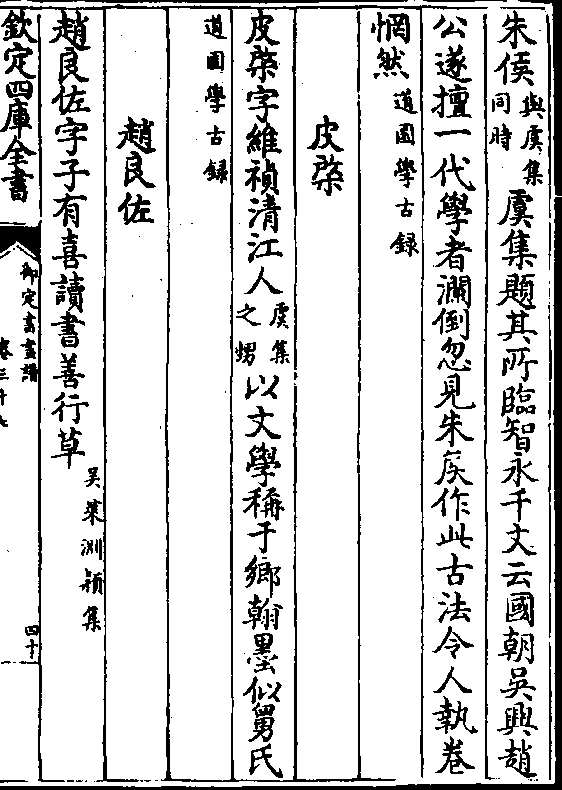 朱侯與虞集同時虞集題其所臨智永千文云國朝吳興趙
公遂擅一代學者瀾倒忽見朱侯作此古法令人執卷
惘然道園學古錄
皮棨
皮棨字維禎清江人虞集之甥以文學稱于鄉翰墨似舅氏
道園學古録
趙良佐
趙良佐字子有喜讀書善行草吳萊淵穎集
欽定四庫全書
御定書畫譜
卷三十九
四十